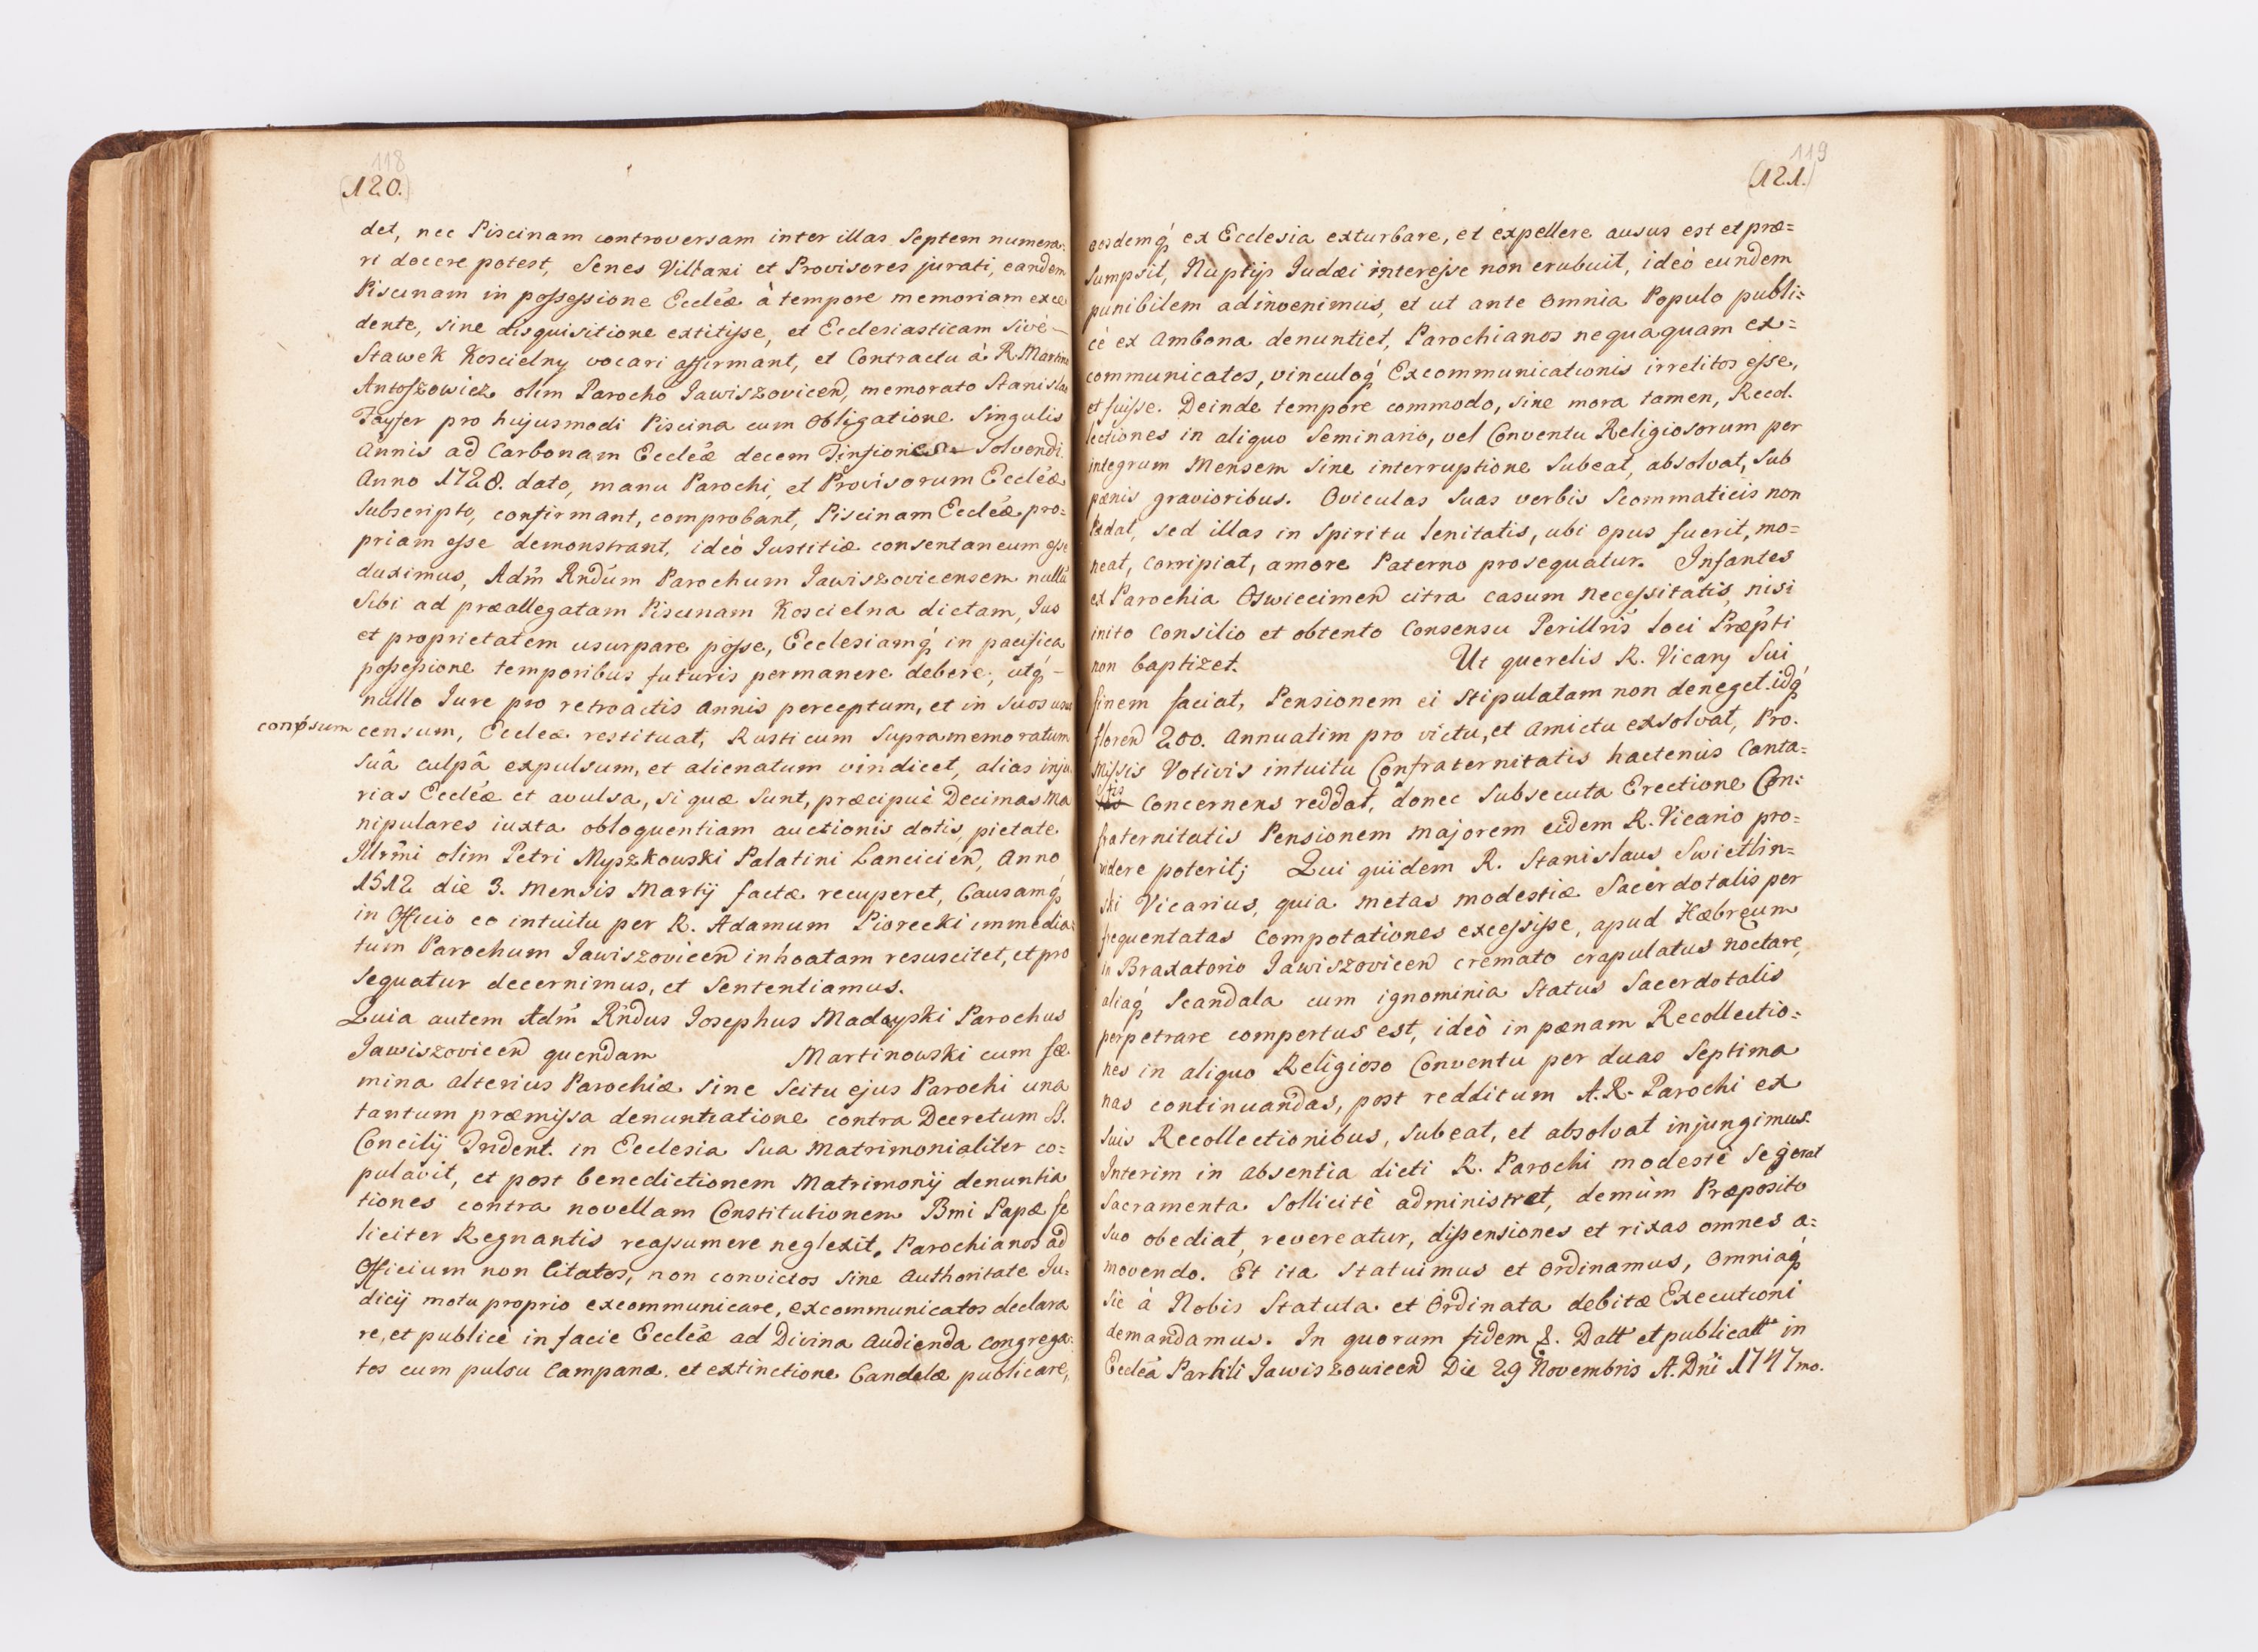 118
(120.)
det, nec Piscinam controversam inter illas Septem numera-
ri docere potest, Senes Villani et Provisores jurati, eandem
Piscinam in possessione Eccleæ à tempore memoriam exce
dente, sine disquisitione extitisse, et Ecclesiasticam sivè —
Stawek Koscielny vocari affirmant, et Contractu à R. Martino
Antoszowicz olim Parocho Jawiszovicen, memorato Stanislao
Fayfer pro hujusmodi Piscina cum obligatione Singulis
Annis ad Carbonam Eccleæ decem Tinfiones — Solvendi.
Anno 1728. dato, manu Parochi, et Provisorum Eccleæ
Subscripto, confirmant, comprobant, Piscinam Eccleæ pro=
priam esse demonstrant, ideò Justitiæ consentaneum esse
duximus, Adm Rndum Parochum Jawiszovicensem nullũ
Sibi ad præallegatam Piscinam Koscielna dictam, Jus
et proprietatem usurpare posse, Ecclesiamq́ in pacifica
possessione temporibus futuris permanere debere, utq́ —
nullo Jure pro retroactis annis perceptum, et in Suos usus
conv̓sum censum, Eccleæ restituat, Rusticum Supramemoratum
Suâ culpâ expulsum, et alienatum vindicet, alias inju
rias Eccleæ et avulsa, si quæ sunt, præcipuè Decimas Ma
nipulares iuxta obloquentiam auctionis dotis, pietate
Illrmi olim Petri Myszkowski Palatini Lancicien, Anno
1512 die 3. Mensis Martij factæ recuperet, Causamq́
in Officio eo intuitu per R. Adamum Piorecki immedia=
tum Parochum Jawiszovicen inhoatam resuscitet, et pro
sequatur decernimus, et Sententiamus.
Quia autem Adm Rndus Josephus Madeyski Parochus
Jawiszovicen quendam Martinowski cum fæ
mina alterius Parochiæ sine Scitu ejus Parochi una
tantum præmissa denuntiatione contra Decretum SS.
Concilij Trident. in Ecclesia Sua Matrimonialiter co=
pulavit, et post benedictionem Matrimonij denuntia
tiones contra novellam Constitutionem Bmi Papæ fe
liciter Regnantis reassumere neglexit, Parochianos ad
Officium non Citatos, non convictos sine Authoritate Ju=
dicij motu proprio excommunicare, excommunicatos declara
re, et publicè in facie Eccleæ ad Divina audienda congrega=
tos cum pulsu Campanæ et extinctione Candelæ publicare,
119
(121.)
eosdemq́ ex Ecclesia exturbare, et expellere ausus est et præ=
sumpsit, Nuptijs Judæi interesse non erubuit, ideò eundem
punibilem adinvenimus, et ut ante omnia Populo publi=
cè ex Ambona denuntiet, Parochianos nequaquam ex=
communicatos, vinculoq́ Excommunicationis irretitos esse,
et fuisse. Deinde tempore commodo, sine mora tamen, Recol.
lectiones in aliquo Seminario, vel Conventu Religiosorum per
integrum Mensem sine interruptione Subeat, absolvat, sub
pænis gravioribus. Oviculas Suas verbis Scommaticis non
lædat, sed illas in Spiritu lenitatis, ubi opus fuerit, mo=
neat, corripiat, amore Paterno prosequatur. Infantes
ex Parochia Oswiecimen citra casum necessitatis, nisi
inito Consilio et obtento Consensu Perillris loci Præpti
non baptizet. Ut querelis R. Vicarij Sui
finem faciat, Pensionem ei Stipulatam non deneget, idq́
floren 200. annuatim pro victu, et amictu exsolvat, Pro.
Missis Votivis intuitu Confraternitatis hactenus Canta=
tis Concernens reddat, donec Subsecuta Erectione Con=
fraternitatis Pensionem majorem eidem R. Vicario pro=
videre poterit; Qui quidem R. Stanislaus Swietlin=
ski Vicarius, quia metas modestiæ Sacerdotalis per
frequentatas Compotationes excessisse, apud Hæbreum
in Braxatorio Jawiszovicen cremato crapulatus noctare,
aliaq́ Scandala cum ignominia Status Sacerdotalis
perpetrare compertus est, ideò in pænam Recollectio=
nes in aliquo Religioso Conventu per duas Septima
nas continuandas, post redditum A. R. Parochi ex
suis Recollectionibus, subeat, et absolvat injungimus.
Interim in absentia dicti R. Parochi modestè se gerat
Sacramenta Sollicitè administret, demùm Præposito
suo obediat, revereatur, dissensiones et rixas omnes a=
movendo. Et ita Statuimus et Ordinamus, Omniaq́
Sic à Nobis Statuta et Ordinata debitæ Executioni
demandamus. In quorum fidem &. Datt et publicatt in
Ecclea Parhli Jawiszowicen Die 29 Novembris A. Dni 1747mo.